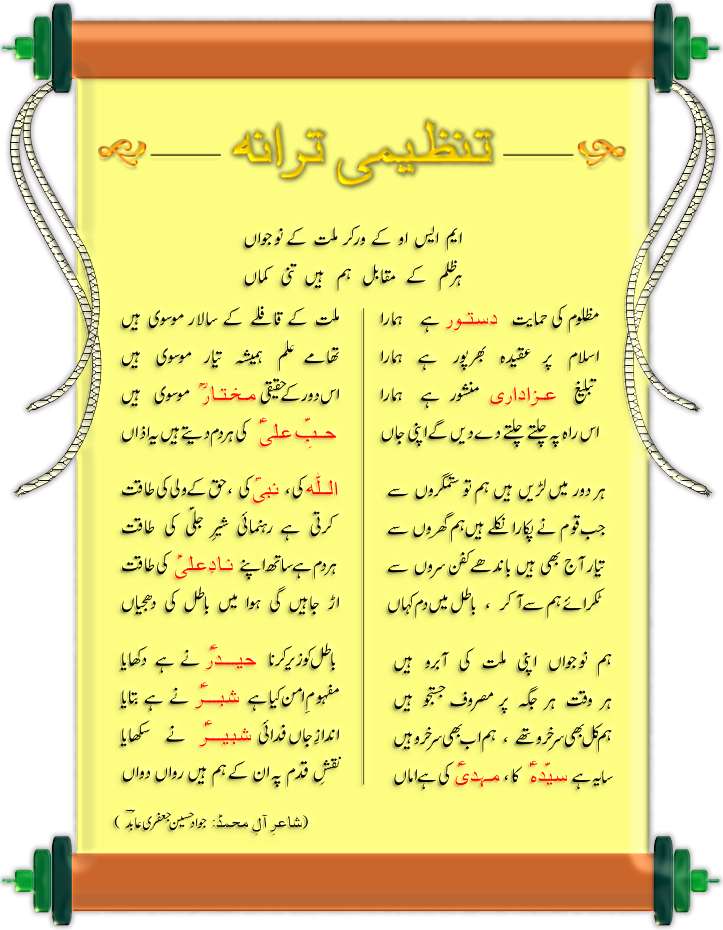 تنظیمی ترانہ
ایم ایس او کے ورکر ملت کے نوجواں
ہر ظلم کے مقابل ہم ہیں تنی کماں
مظلوم کی حمایت دستور ہے ہمارا
اسلام پر عقیدہ بھرپور ہے ہمارا
تبلیغ عزاداری منشور ہے ہمارا
اس راہ پہ چلتے چلتے دے دیں گے اپنی جاں
ہر دور میں لڑیں ہیں ہم تو ستمگروں سے
جب قوم نے پکارا نکلے ہیں ہم گھروں سے
تیار آج بھی ہیں باندھے کفن سروں سے
ٹکرائے ہم سے آ کر ، باطل میں دم کہاں
ہم نوجواں اپنی ملت کی آبرو ہیں
ہر وقت ہر جگہ پر مصروف جستجو ہیں
ہم کل بھی سرخرو تھے ، ہم اب بھی سرخرو ہیں
سایہ ہے سیدہؑ کا، مہدیؑ کی ہے اماں
ملت کے قافلے کے سالار موسوی ہیں
تھامے علم ہمیشہ تیار موسوی ہیں
اس دور کے حقیقی مختارؒ موسوی ہیں
حبِّ علیؑ کی ہر دم دیتے ہیں یہ اذاں
اللہ کی، نبیؐ کی ، حق کے ولی کی طاقت
کرتی ہے رہنمائی شیرِ جلیؑ کی طاقت
ہر دم ہے ساتھ اپنے نادِ علیؑ کی طاقت
اڑ جاہیں گی ہوا میں باطل کی دھجیاں
باطل کو زیر کرنا حیدرؑ نے ہے دکھایا
مفہومِ امن کیا ہے شبرؑ نے ہے بتایا
اندازِ جاں فدائی شبیرؑ نے سکھایا
نقشِ قدم پہ ان کے ہم ہیں رواں دواں
(شاعرِ آلِ محمدؐ: جواد حسین جعفری عابدؔ )